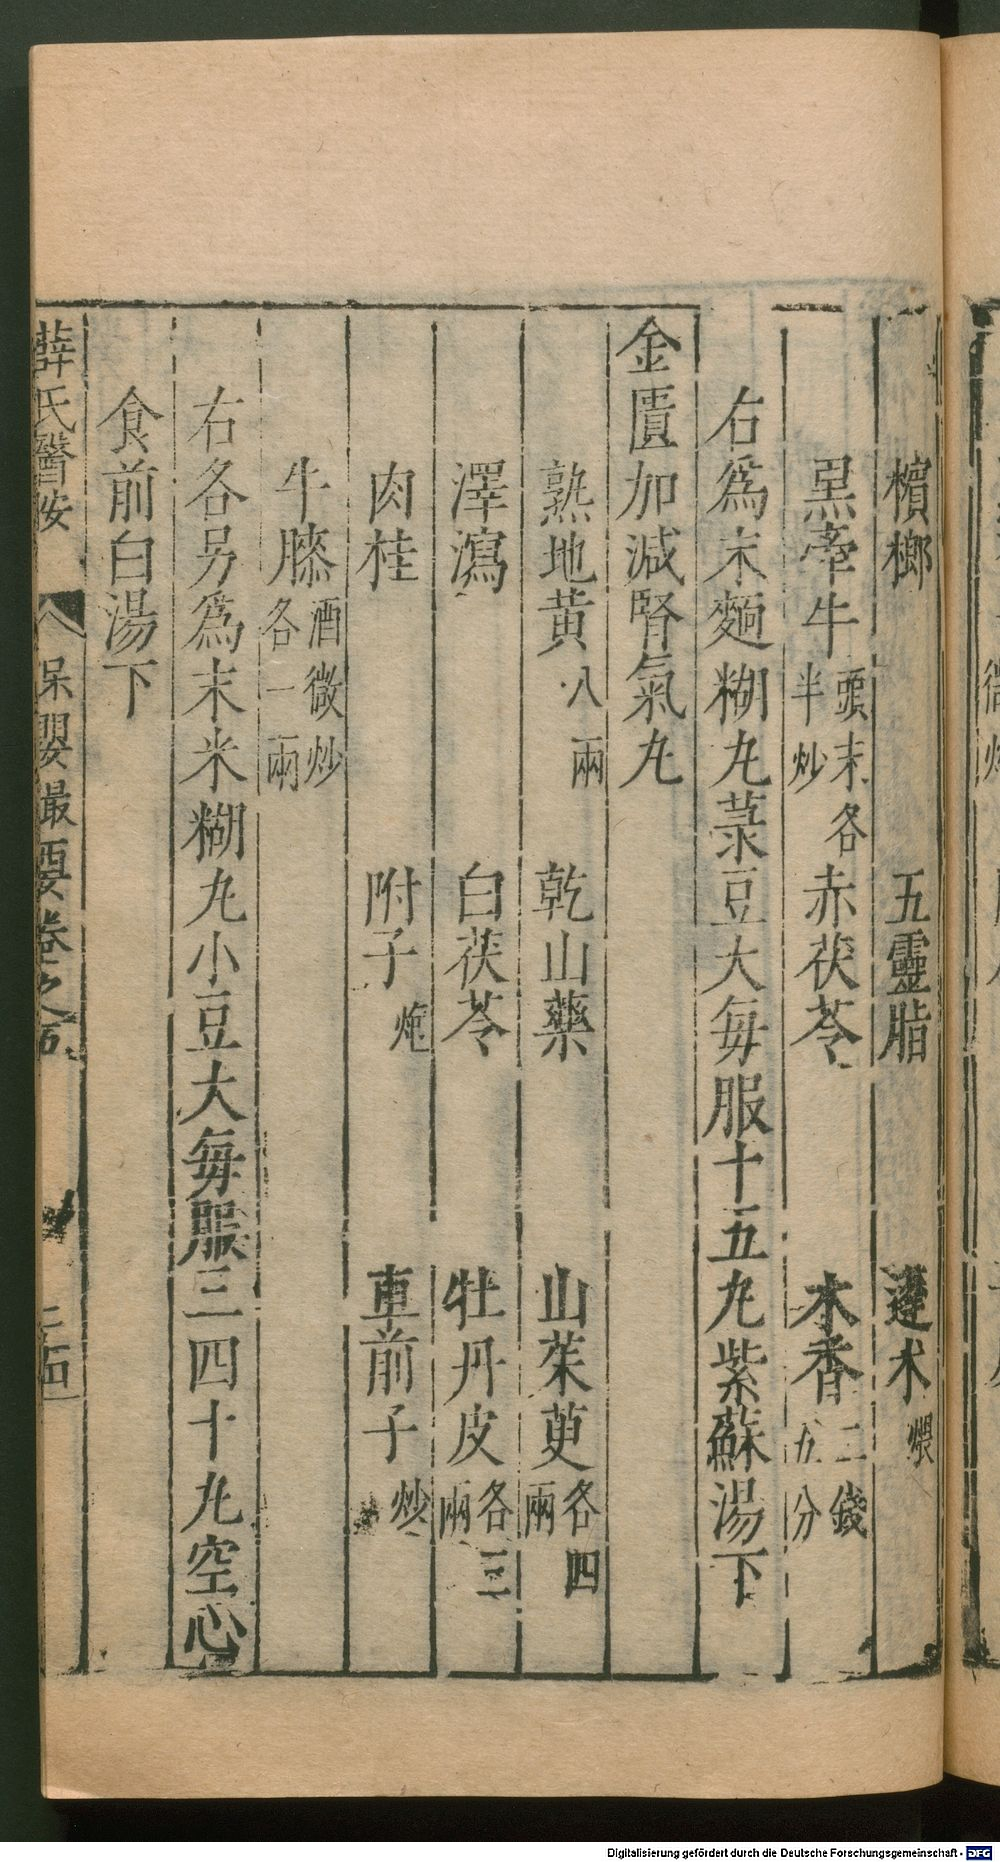 檳榔 五靈脂 蓬术煨
黑牽牛頭末各半炒 赤茯苓 木香二錢五分
右爲末麵糊丸菉豆大每服十五丸紫蘇湯下
金匱加減腎氣丸
熟地黃八兩 乾山藥 山茱萸各四兩
澤瀉 白茯苓 牡丹皮各三兩
肉桂 附子炮 車前子炒
牛膝酒微炒各一兩
右各另爲末米糊丸小豆大每服三四十丸空心
食前白湯下
薛氏醫按 保嬰撮要卷之五
Digitalisierung gefördert durch die Deutsche Forschungsgemeinschaft - DFG